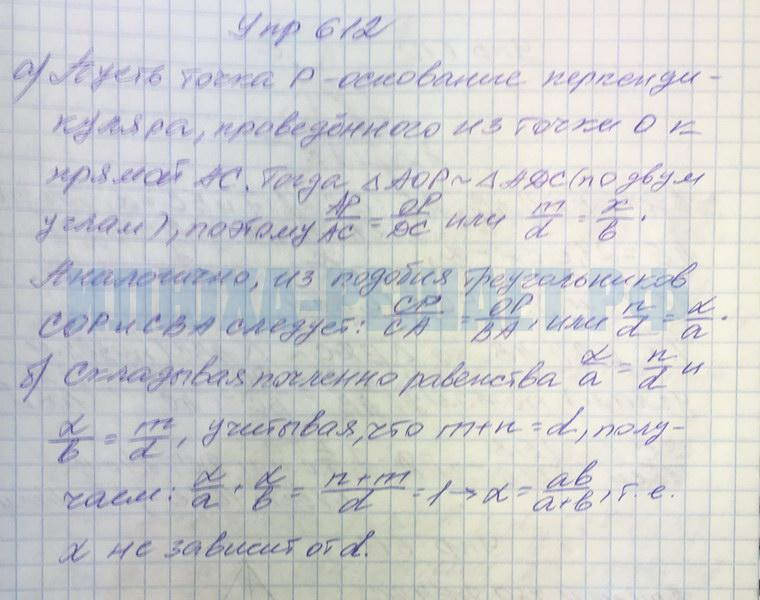 Упр 612
а) Пусть точка P - основание перпенди-
куляра, проведённого из точки O к
прямой AC. Тогда △AOP ~ △ADC (по двум
углам), поэтому AP/AC = OP/DC или m/d = x/b.
Аналогично, из подобия треугольников
COP и CBA следует: CP/CA = OP/BA, или n/d = x/a.
б) Складывая почленно равенства x/a = n/d и
x/b = m/d, учитывая, что m+n = d, полу-
чаем: x/a + x/b = (n+m)/d = 1 → x = ab/(a+b), т.е.
x не зависит от d.